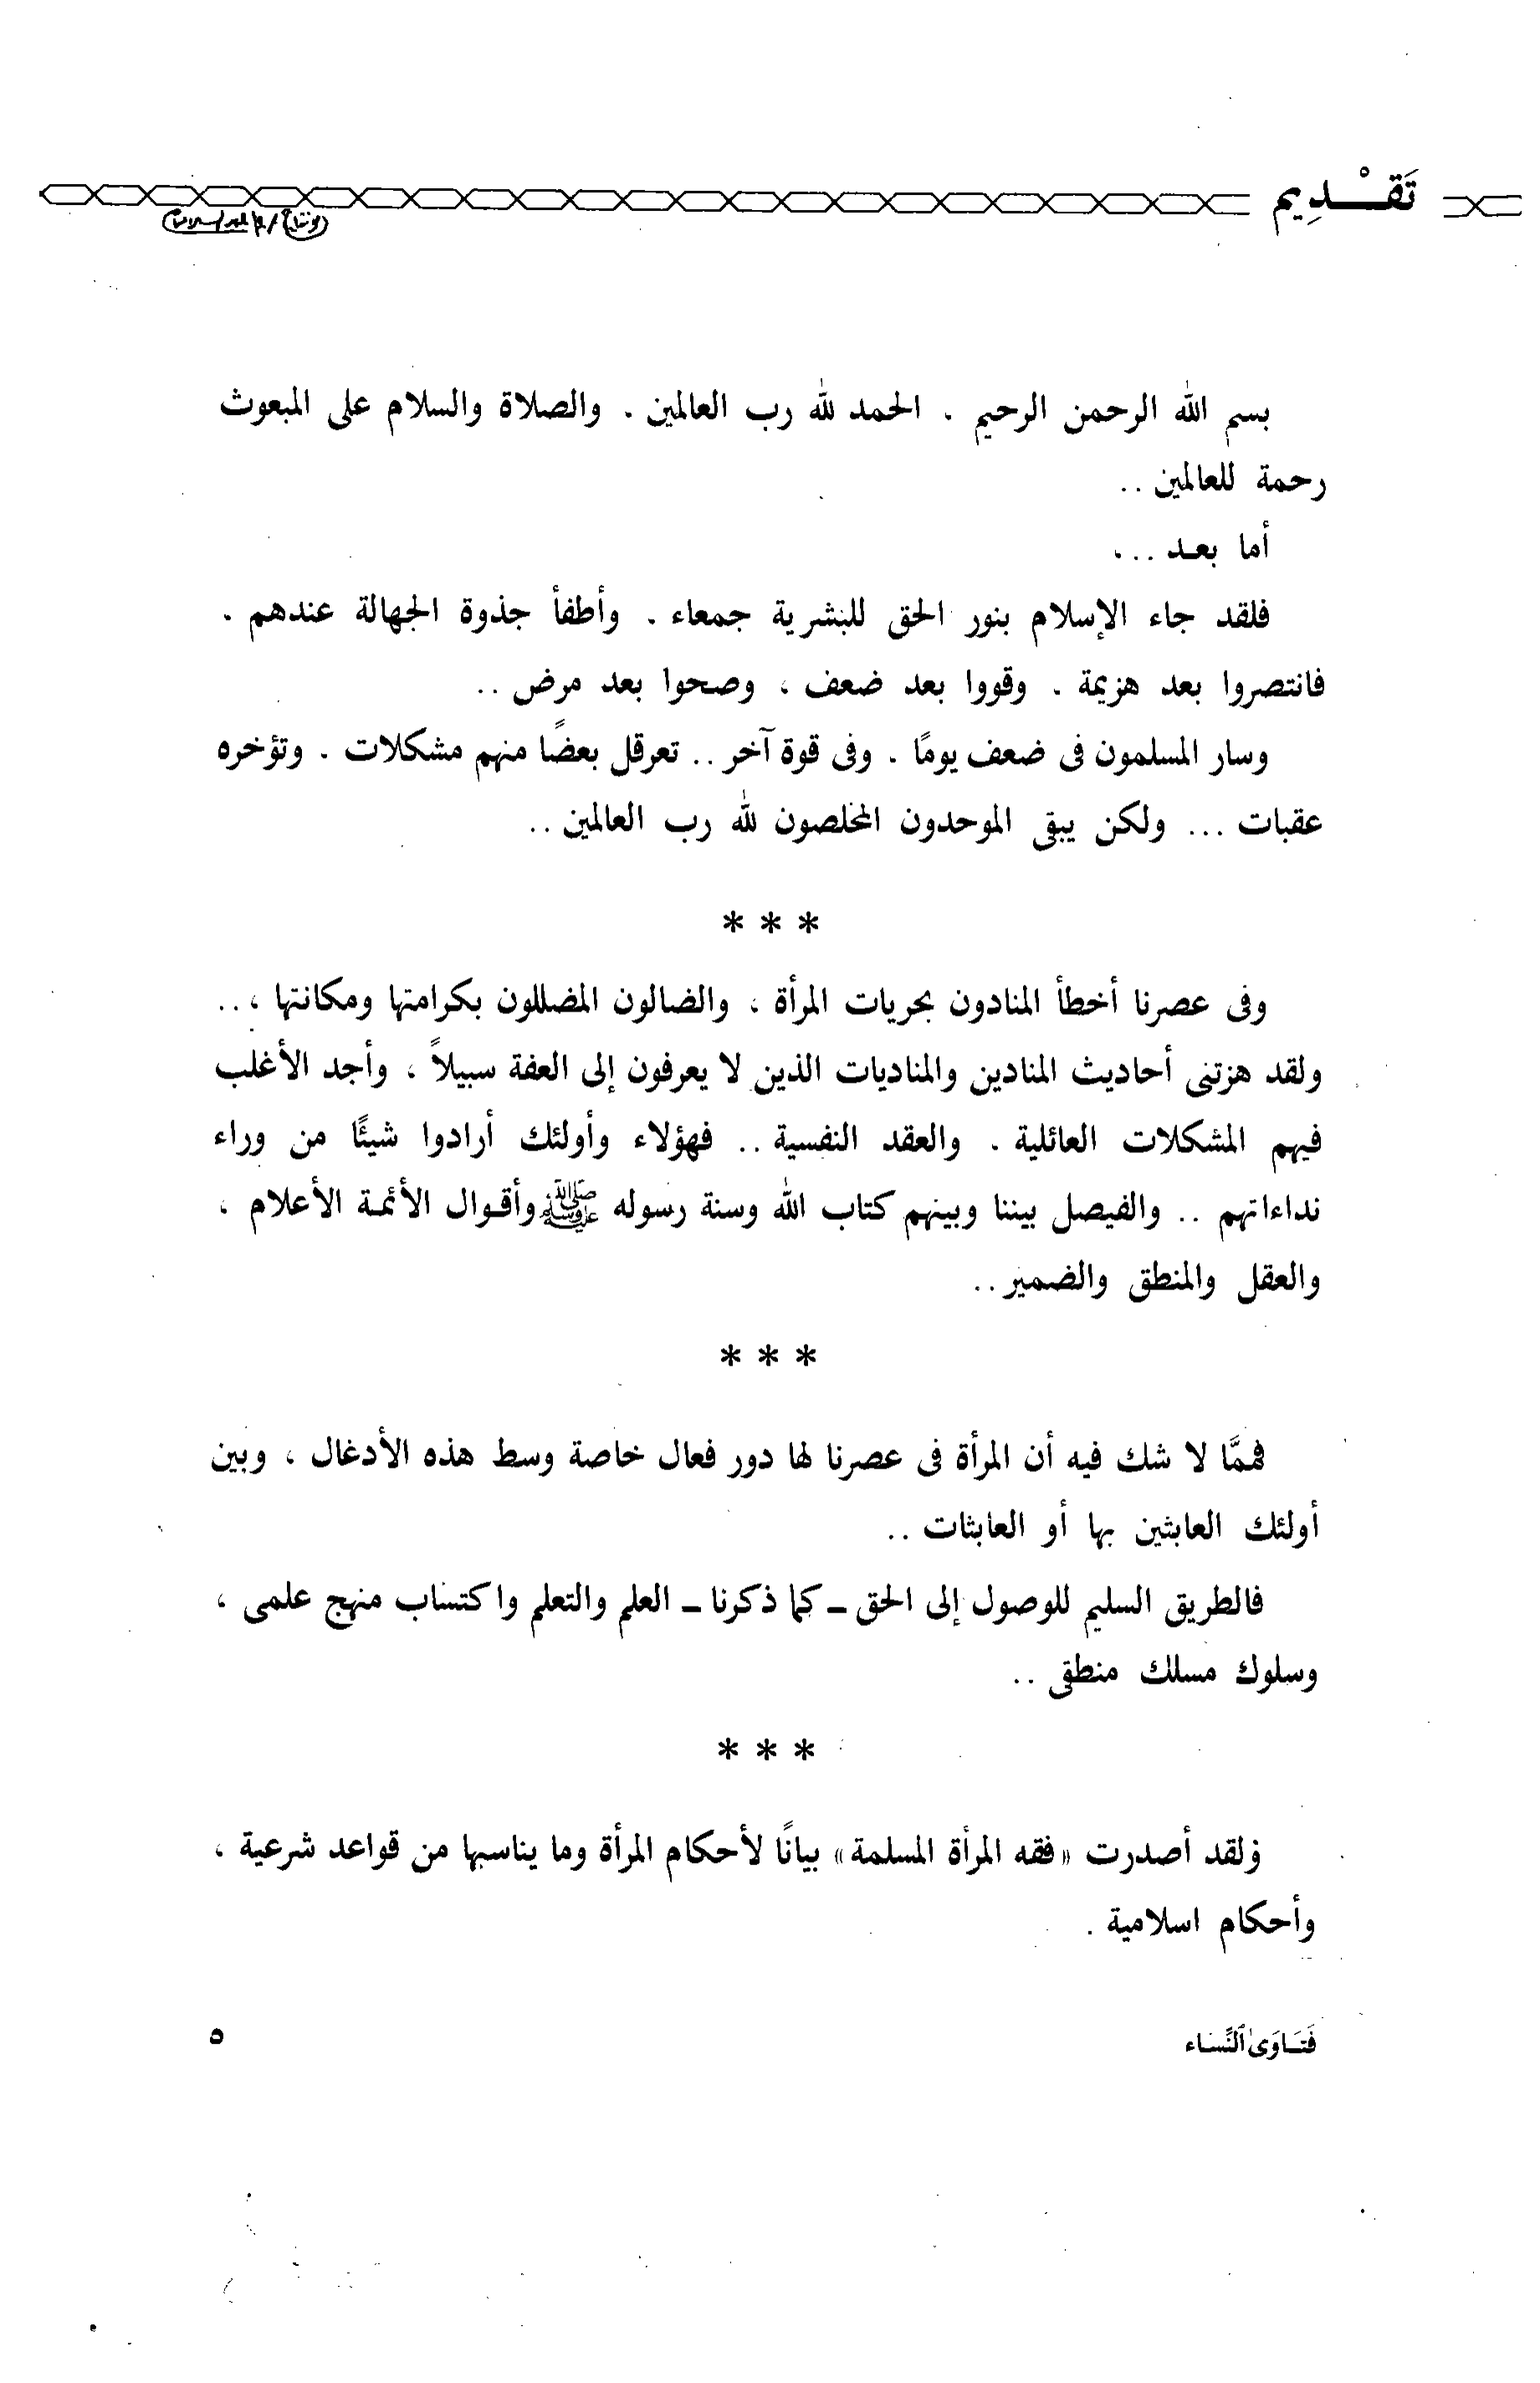 تَقْـــدِيم
بسم الله الرحمن الرحيم . الحمد لله رب العالمين . والصلاة والسلام على المبعوث
رحمة للعالمين ..
أما بعـد ... ،
فلقد جاء الإسلام بنور الحق للبشرية جمعاء . وأطفأ جذوة الجهالة عندهم .
فانتصروا بعد هزيمة . وقووا بعد ضعف ، وصحوا بعد مرض ..
وسار المسلمون فى ضعف يومًا . وفى قوة آخر .. تعرقل بعضًا منهم مشكلات . وتؤخره
عقبات ... ولكن يبقى الموحدون المخلصون لله رب العالمين ..
* * *
وفى عصرنا أخطأ المنادون بحريات المرأة ، والضالون المضللون بكرامتها ومكانتها ، ..
ولقد هزتنى أحاديث المنادين والمناديات الذين لا يعرفون إلى العفة سبيلاً ، وأجد الأغلب
فيهم المشكلات العائلية . والعقد النفسية .. فهؤلاء وأولئك أرادوا شيئًا من وراء
نداءاتهم .. والفيصل بيننا وبينهم كتاب الله وسنة رسوله ﷺ وأقـوال الأئمـة الأعلام ،
والعقل والمنطق والضمير ..
* * *
فممَّا لا شك فيه أن المرأة فى عصرنا لها دور فعال خاصة وسط هذه الأدغال ، وبين
أولئك العابثين بها أو العابثات ..
فالطريق السليم للوصول إلى الحق ــ كما ذكرنا ــ العلم والتعلم واكتساب منهج علمى ،
وسلوك مسلك منطقى ..
* * *
ولقد أصدرت «فقه المرأة المسلمة» بيانًا لأحكام المرأة وما يناسبها من قواعد شرعية ،
وأحكام اسلامية .
فَتَـاوَىٰ ٱلنِّسَـاء
٥